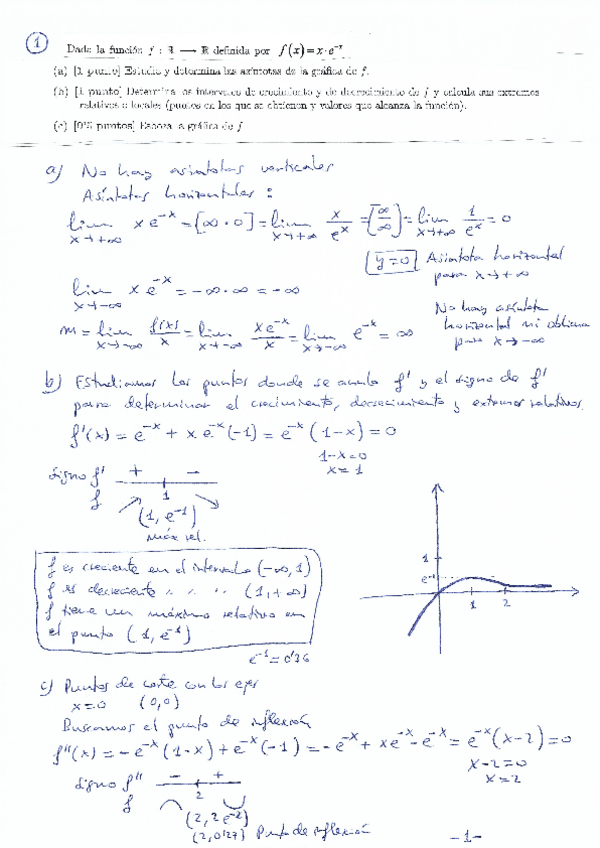 1
Dada la función f : ℝ → ℝ definida por f(x)=x·e^{-x}
(a) [1 punto] Estudia y determina las asíntotas de la gráfica de f.
(b) [1 punto] Determina los intervalos de crecimiento y de decrecimiento de f y calcula sus extremos
relativos o locales (puntos en los que se obtienen y valores que alcanza la función).
(c) [0'5 puntos] Esboza la gráfica de f
a) No hay asíntotas verticales
Asíntotas horizontales :
lim x→+∞ x e^{-x} = [∞·0] = lim x→+∞ x/e^x = [∞/∞] = lim x→+∞ 1/e^x = 0
y=0 Asíntota horizontal
para x→+∞
lim x→-∞ x e^{-x} = -∞·∞ = -∞
No hay asíntota
horizontal ni oblicua
para x→-∞
m = lim x→-∞ f(x)/x = lim x→-∞ xe^{-x}/x = lim x→-∞ e^{-x} = ∞
b) Estudiamos los puntos donde se anula f' y el signo de f'
para determinar el crecimiento, decrecimiento y extremos relativos.
f'(x) = e^{-x} + x e^{-x}(-1) = e^{-x}(1-x) = 0
1-x=0
x=1
signo f' + -
f 1
(1, e^{-1})
máx rel.
f es creciente en el intervalo (-∞,1)
f es decreciente " " " (1,+∞)
f tiene un máximo relativo en
el punto (1, e^{-1})
e^{-1}=0'36
1
e^{-1}
1 2
c) Puntos de corte con los ejes
x=0 (0,0)
Buscamos el punto de inflexión
f''(x) = -e^{-x}(1-x)+e^{-x}(-1) = -e^{-x}+xe^{-x}-e^{-x} = e^{-x}(x-2)=0
x-2=0
x=2
signo f'' - +
f 2
(2, 2e^{-2})
(2,0'27) Punto de inflexión
-1-